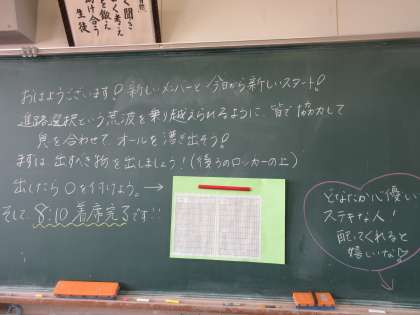 く聞き
く考え
を鍛え
助け合う
生徒
おはようございます！新しいメンバーと今日から新しいスタート！
進路選択という荒波を乗り越えられるように、皆で協力して
息を合わせて、オールを漕ぎ出そう！
まずは、出すべき物を出しましょう！（後ろのロッカーの上）
出したら〇を付けよう。→
そして 8:10 着席完了です!!
どなたか心優しい
ステキな人！
配ってくれると
嬉しいな